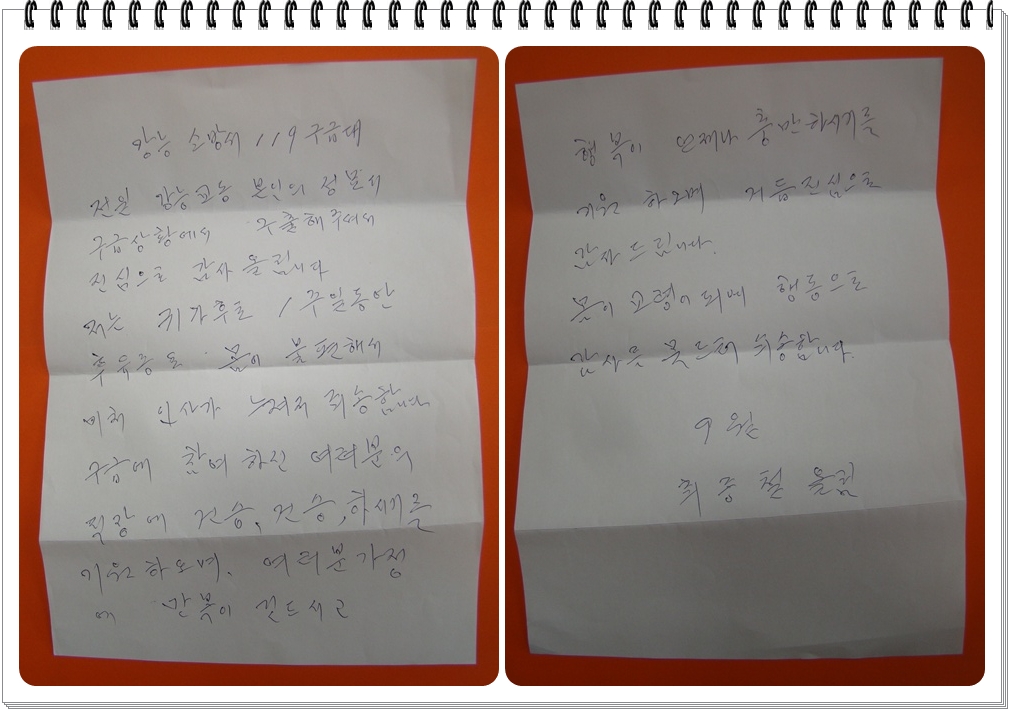 강능 소방서 119 구급대
전일 강능교동 본인의 정묘서
구급상황에서 구출해주셔서
진심으로 감사 올립니다
저는 귀가후로 1주일동안
후유증도 몸이 불편해서
미처 인사가 늦어저 죄송합니다
구급에 참여하신 여러분의
직장에 건승, 건승, 하시기를
기원하오며, 여러분가정
에 만복이 깃드시고
행복이 언제나 충만하시기를
기원 하오며 거듭진심으로
감사드립니다.
몸이 고령이되매 행동으로
감사를 못드려 죄송합니다.
9월
최종철 올림